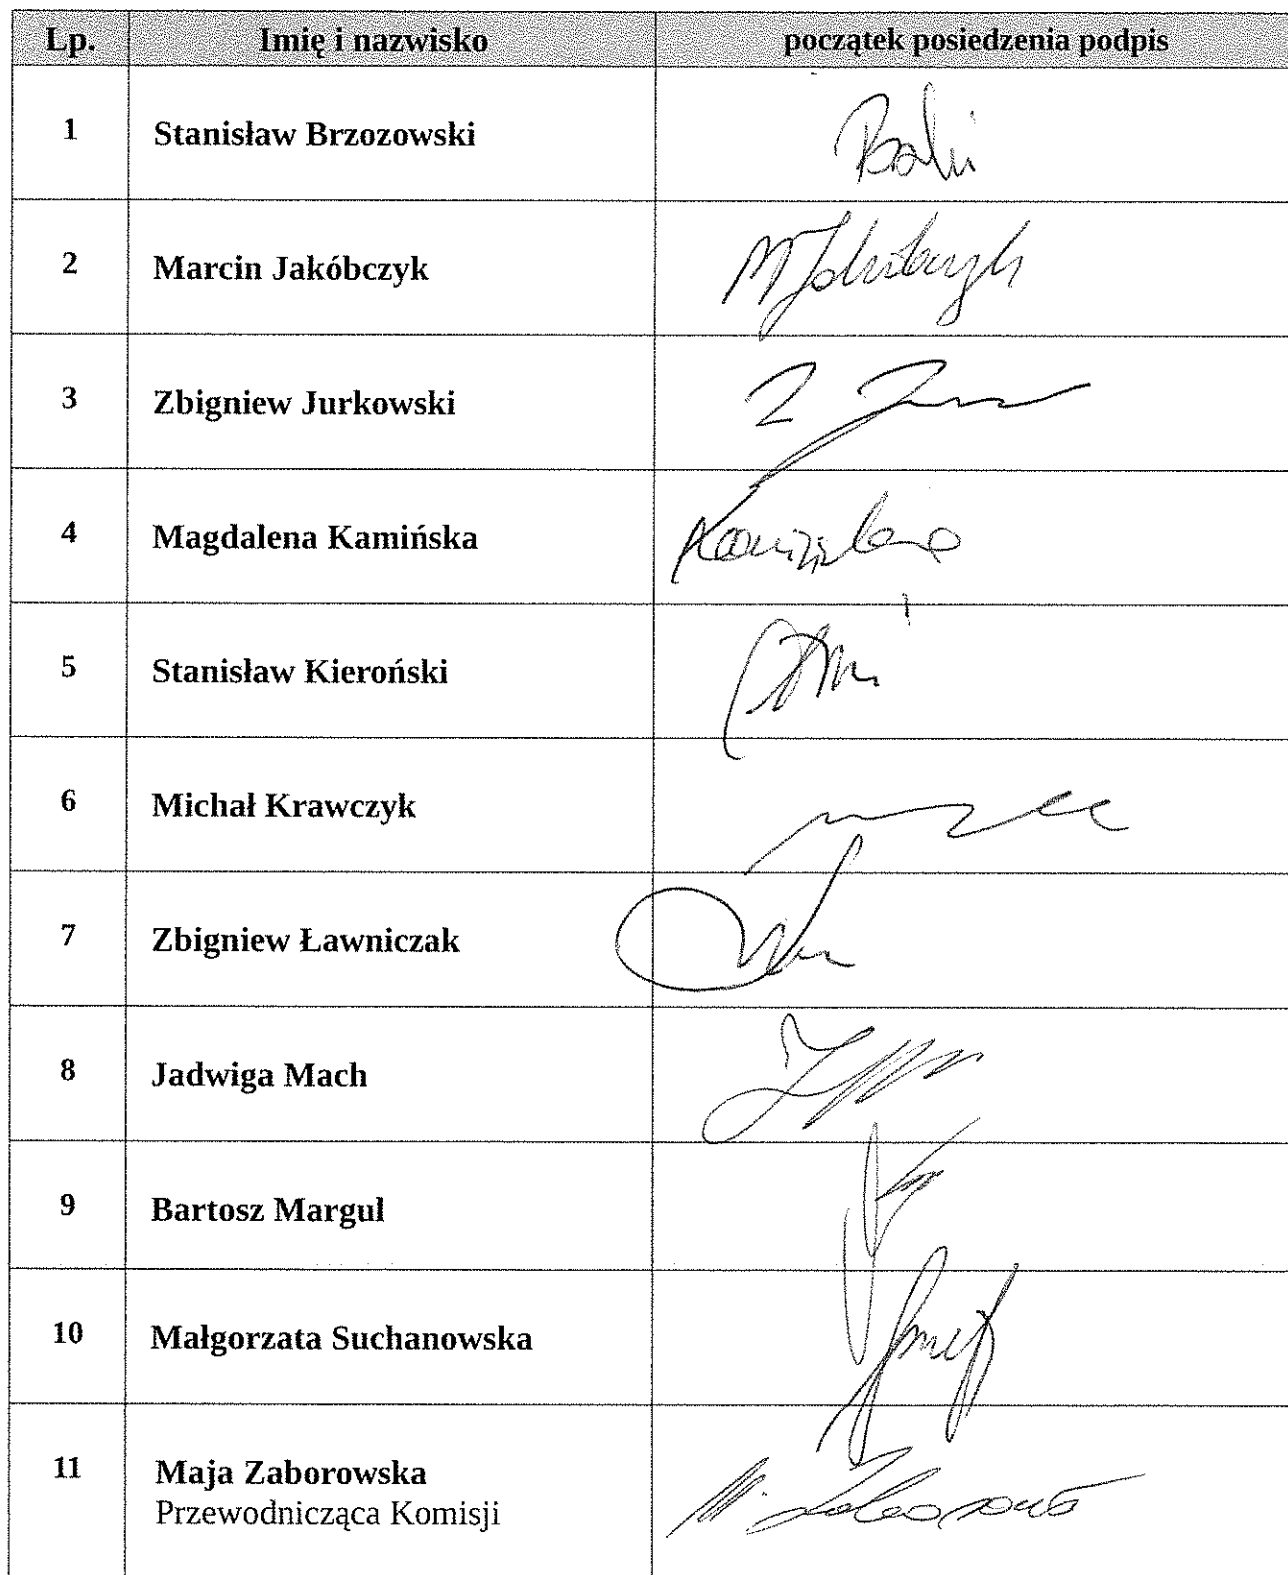 Lp. Imię i nazwisko początek posiedzenia podpis
1 Stanisław Brzozowski
2 Marcin Jakóbczyk MJakóbczyk
3 Zbigniew Jurkowski
4 Magdalena Kamińska Kamińska
5 Stanisław Kieroński
6 Michał Krawczyk
7 Zbigniew Ławniczak
8 Jadwiga Mach
9 Bartosz Margul
10 Małgorzata Suchanowska
11 Maja Zaborowska
Przewodnicząca Komisji